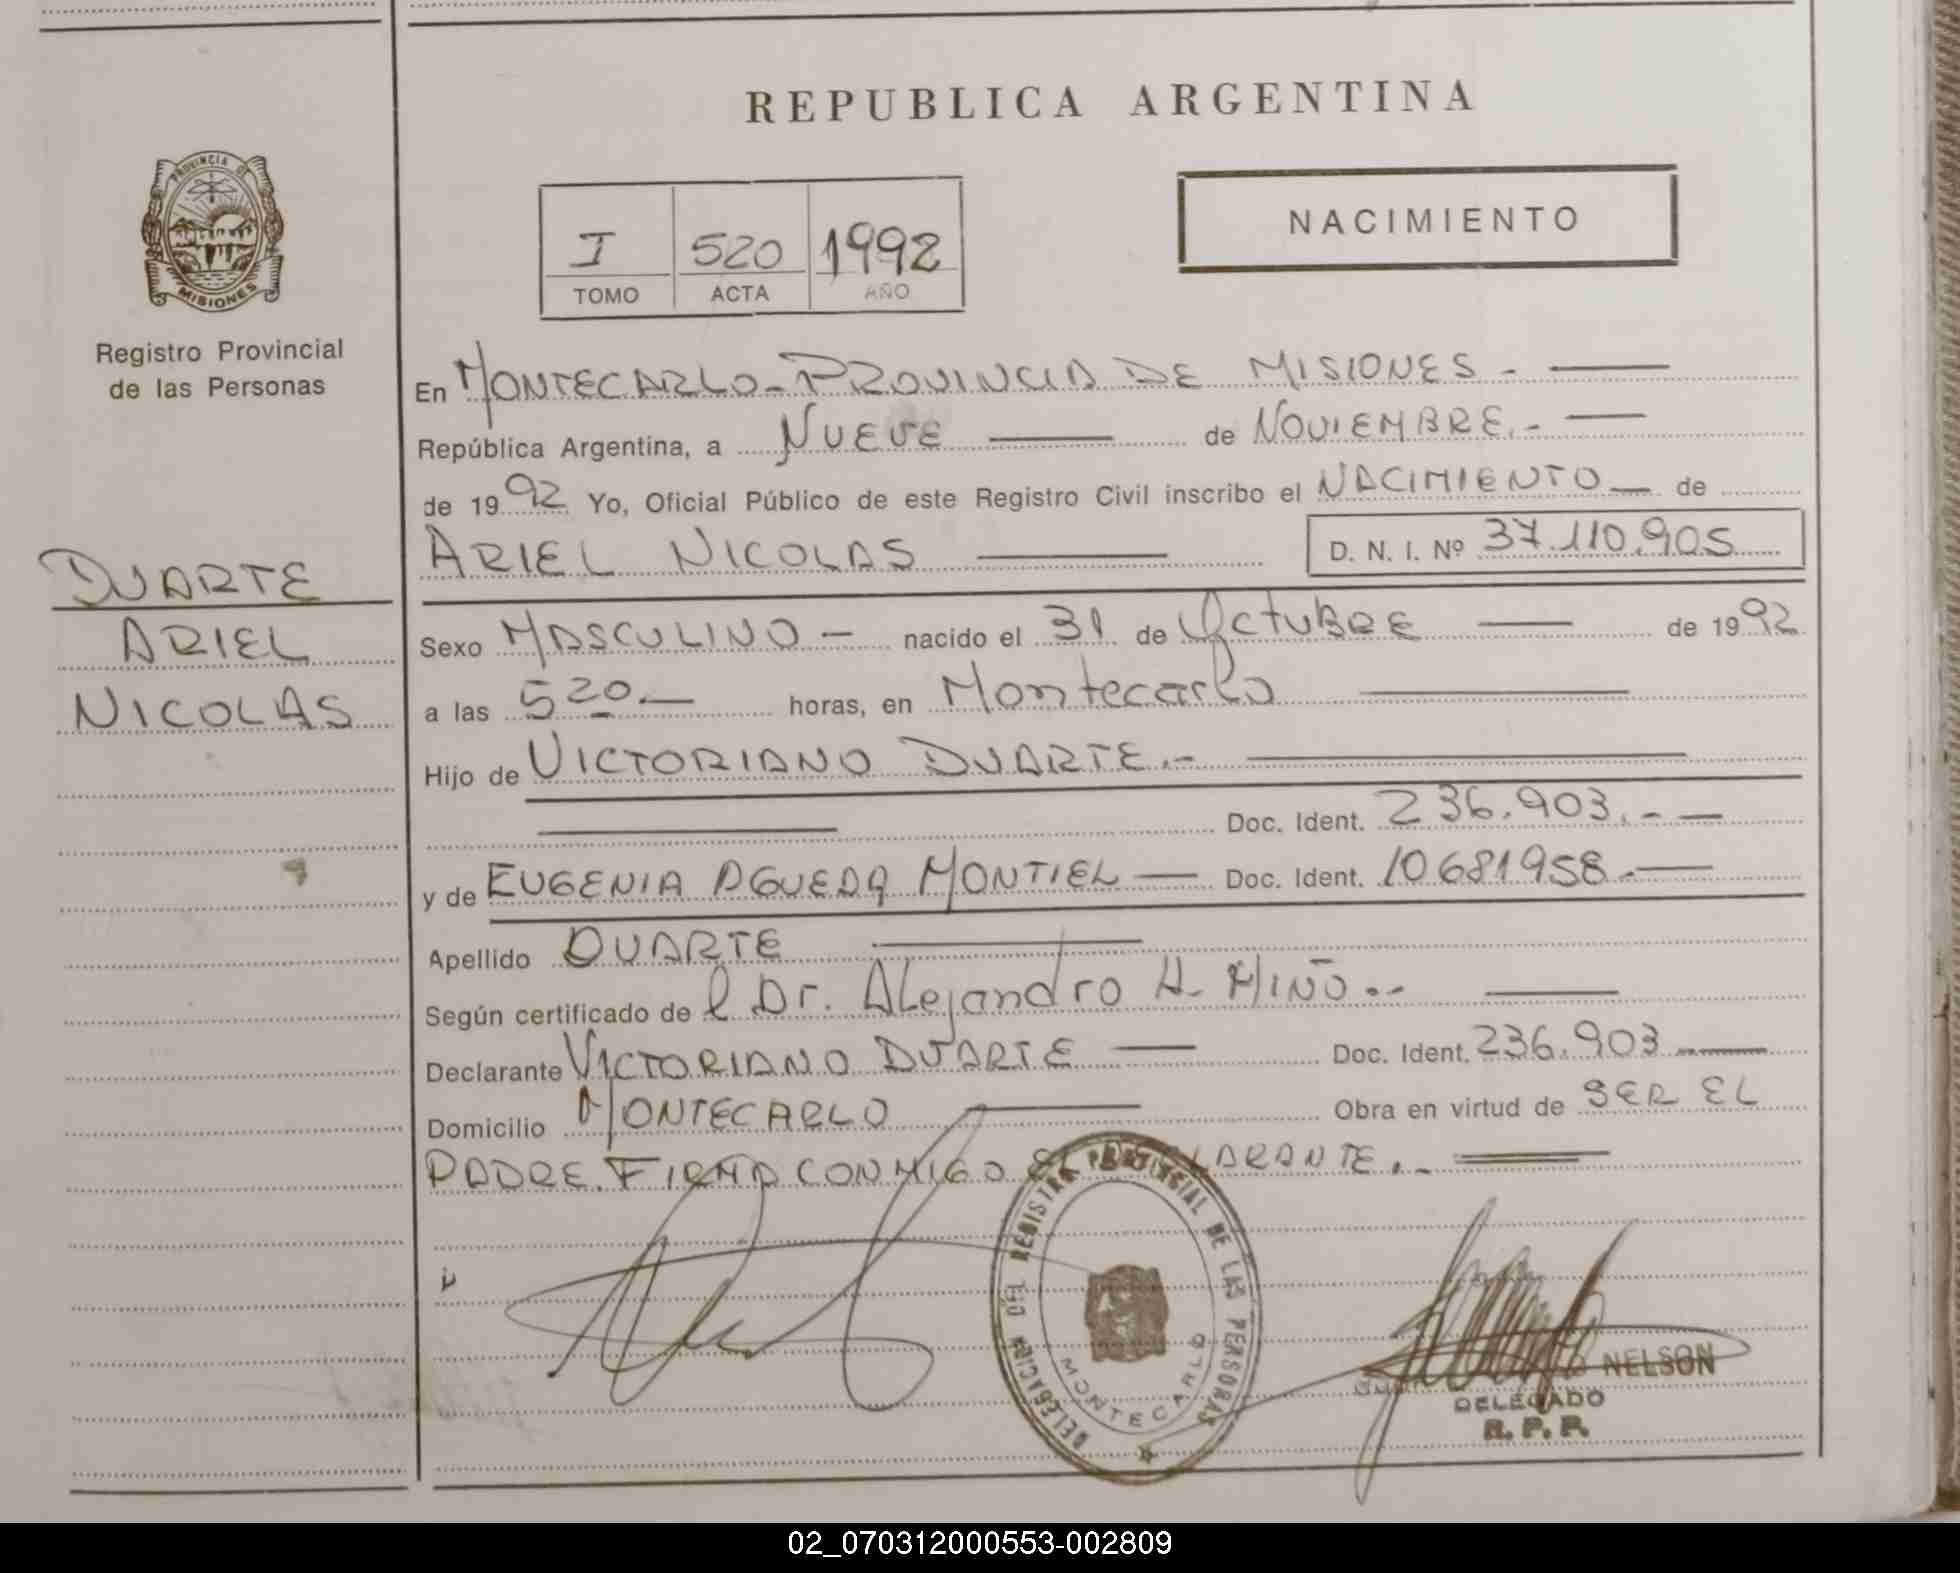 REPUBLICA ARGENTINA
PROVINCIA DE
MISIONES
Registro Provincial
de las Personas
I 520 1992
TOMO ACTA AÑO
NACIMIENTO
En MONTECARLO - PROVINCIA DE MISIONES . -
República Argentina, a NUEVE de NOVIEMBRE . -
de 1992 Yo, Oficial Público de este Registro Civil inscribo el NACIMIENTO de
ARIEL NICOLAS D. N. I. Nº 37.110.905
DUARTE
ARIEL
NICOLAS
Sexo MASCULINO - nacido el 31 de Octubre de 1992
a las 5 20 . - horas, en Montecarlo
Hijo de VICTORIANO DUARTE . -
Doc. Ident. 236.903 . -
y de EUGENIA AGUEDA MONTIEL - Doc. Ident. 10681958 . -
Apellido DUARTE
Según certificado de l Dr. Alejandro H. MIÑO . -
Declarante VICTORIANO DUARTE - Doc. Ident. 236.903
Domicilio MONTECARLO Obra en virtud de SER EL
PADRE. FIRMA CONMIGO . -
DELEGACION DEL REGISTRO PROVINCIAL DE LAS PERSONAS
MONTECARLO
NELSON
DELEGADO
R. P. P.
02_070312000553-002809